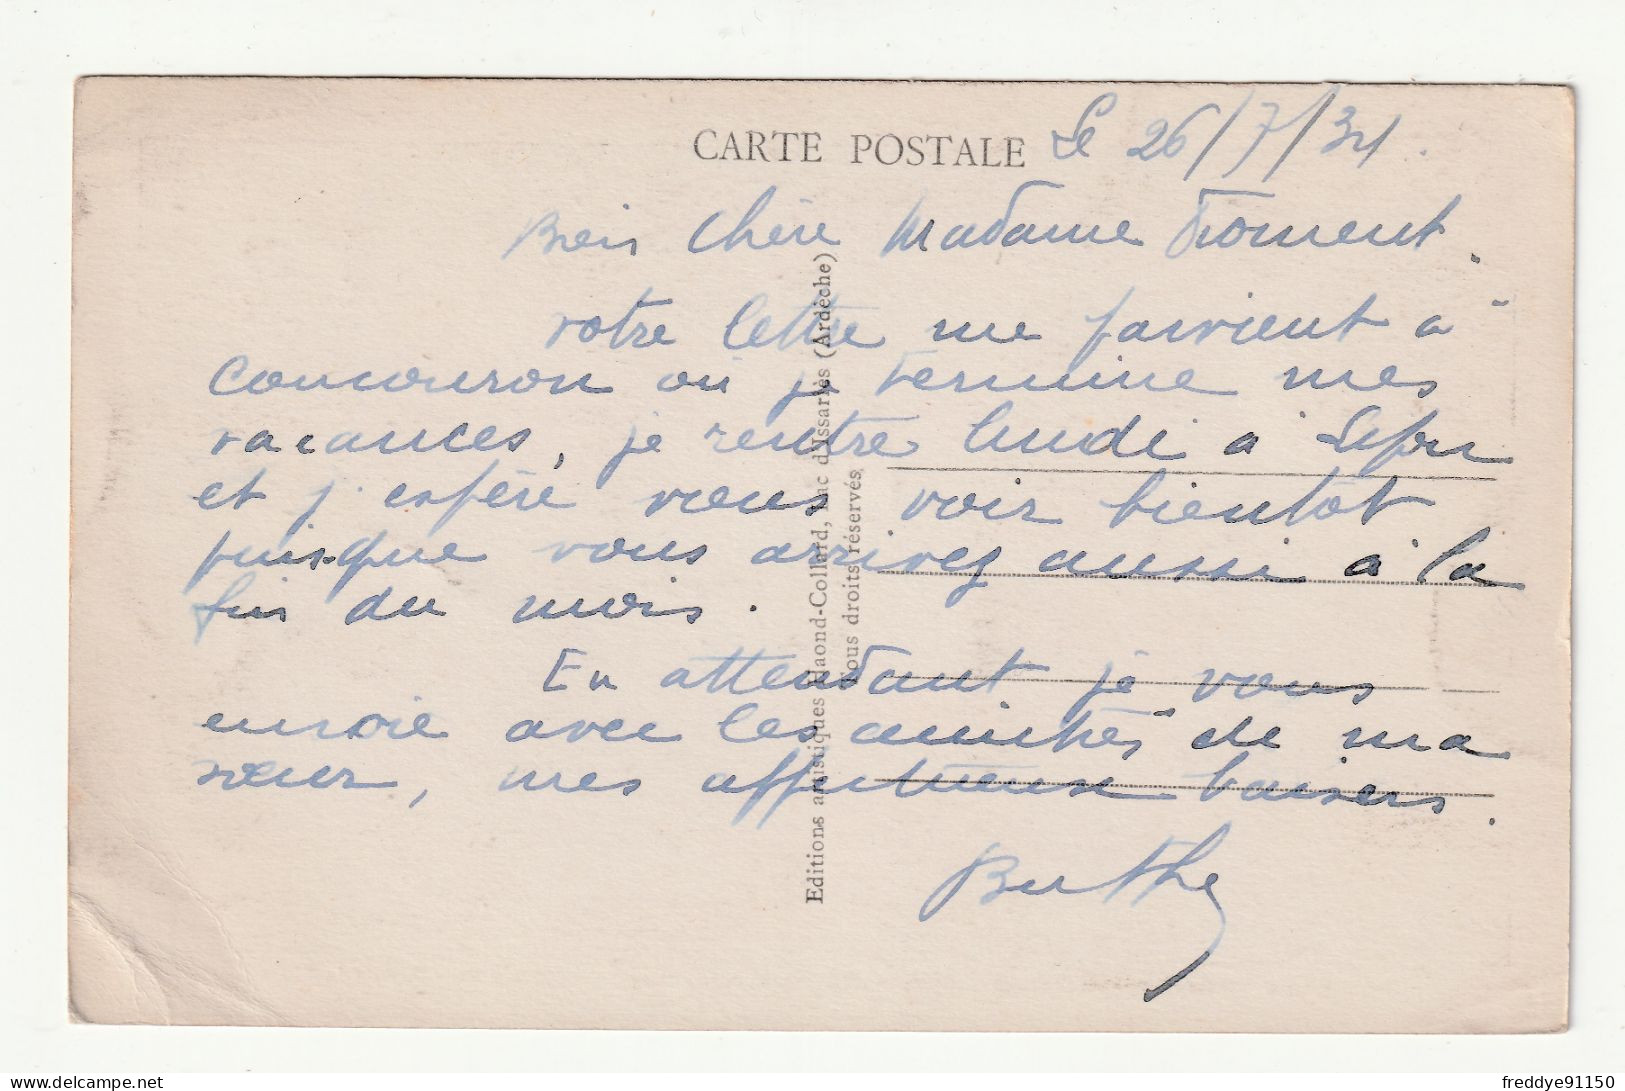 CARTE POSTALE Le 26/7/34.
Bien Chère Madame Froment.
votre lettre me parvient à
Coucouron où je termine mes
vacances, je rentre lundi à Lyon
et j'espère vous voir bientôt
puisque vous arrivez aussi à la
fin du mois.
En attendant je vous
envoie avec les amitiés de ma
sœur, mes affectueux baisers.
Berthe
Editions artistiques Haond-Collard, Lac d'Issarlès (Ardèche)
Tous droits réservés
freddye91150